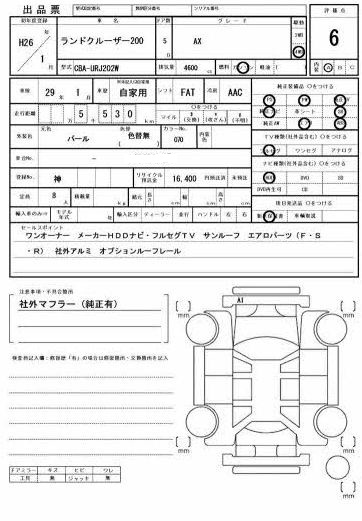 出品票
型式指定番号
類別区分番号
シリアル番号
評価点
6
初年度登録 車名 ドア数 グレード 駆動
H26年 1月 ランドクルーザー200 5 AX
型式 CBA-URJ202W 排気量 4600 cc 燃料 軽油
内装
車検 29年 1月 車歴 自家用 シフト FAT 冷房 AAC
走行距離 5千530km
○をつける
マイル
外装色 元色 パール 色替 色替無 カラーNo. 070 内装色
車台No.
登録No. 神 リサイクル預託金 16,400 円預託済 未預託
定員 8人 積載量 kg 諸元 長さ cm 幅 cm 高さ cm
輸入車のみ モデル年式 年 輸入区分 ディーラー 並行 ハンドル 左 右
純正装備品 ○をつける
革シート
純正AW
TV種類(社外品含む)○をつける
フルセグ ワンセグ アナログ
ナビ種類(社外品含む)○をつける
HDD DVD SD
DVD再生可 CD
後日発送品 ○をつける
新 保証書 車輌取説
セールスポイント
ワンオーナー メーカーHDDナビ・フルセグTV サンルーフ エアロパーツ(F・S
・R) 社外アルミ オプションルーフレール
注意事項・不具合箇所
社外マフラー(純正有)
検査員記入欄・修復歴「有」の場合は修復箇所・交換箇所を記入
A1
[ ]mm
[ ]mm
[ ]mm
[ ]mm
ドアミラー キズ ヒビ ワレ
工具 無 ジャッキ 無